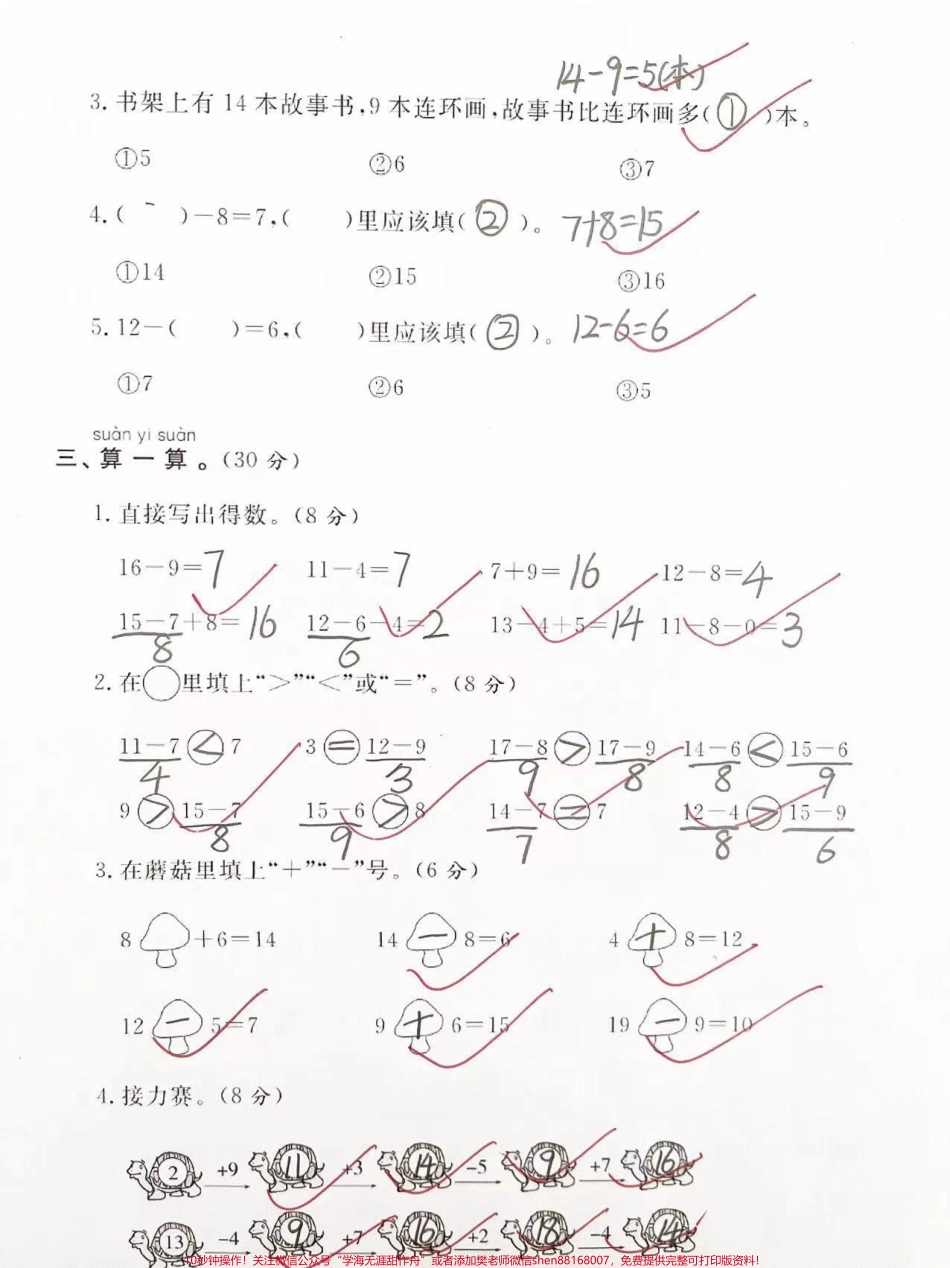 14-9=5(本)
3.书架上有 14 本故事书,9 本连环画,故事书比连环画多(①)本。
①5 ②6 ③7
4.( )-8=7,( )里应该填(②)。 7+8=15
①14 ②15 ③16
5.12-( )=6,( )里应该填(②)。 12-6=6
①7 ②6 ③5
suàn yi suàn
三、算一算。(30 分)
1.直接写出得数。(8 分)
16-9=7 11-4=7 7+9=16 12-8=4
15-7+8=16 12-6-4=2 13-4+5=14 11-8-0=3
8 6
2.在○里填上“>”“<”或“=”。(8 分)
11-7<7 3=12-9 17-8>17-9 14-6<15-6
4 3 9 8 8 9
9>15-7 15-6>8 14-7=7 12-4>15-9
8 9 7 8 6
3.在蘑菇里填上“+”“-”号。(6 分)
8 +6=14 14-8=6 4+8=12
12-5=7 9+6=15 19-9=10
4.接力赛。(8 分)
2 +9 11 +3 14 -5 9 +7 16
13 -4 9 +7 16 +2 18 -4 14
10秒钟操作!关注微信公众号“学海无涯甜作舟”或者添加樊老师微信shen88168007,免费提供完整可打印版资料!